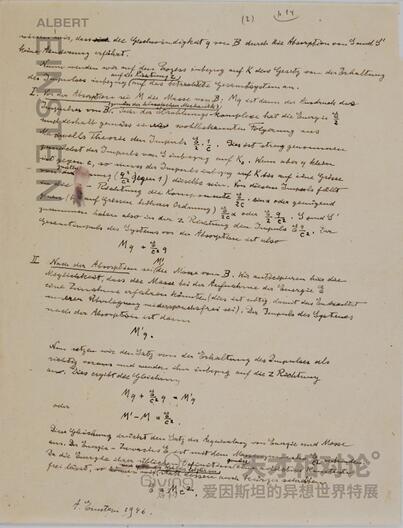 ALBERT
EINSTEIN
(2)
wissen wir, dass die Geschwindigkeit q von B durch die Absorption von S und S'
keine Aenderung erfährt.
Nun wenden wir auf den Prozess inbezug auf K das Gesetz von der Erhaltung
auf die Richtung z
des Impulses inbezug auf das betrachtete Gesamtsystem an.
I. Vor der Absorption sei M die Masse von B; Mq ist dann der Ausdruck des
Impulses von B. Jeder der Strahlungs-Komplexe hat die Energie E/2
und deshalb gemäss einer wohlbekannten Folgerung aus
Maxwells Theorie den Impuls E/2 · 1/c. Dies ist streng genommen
der Impuls von S inbezug auf K₀. Wenn aber q klein
ist gegen c, so muss der Impuls inbezug auf K bis auf eine Grösse
(q²/c² gegen 1) dieselbe sein. Von diesem Impuls fällt
in die z-Richtung die Komponente
(bis auf Grössen höherer Ordnung) E/2c α oder E/2 q/c². S und S'
zusammen haben also in der z Richtung den Impuls E q/c². Der
Gesamtimpuls des Systems vor der Absorption ist also
Mq + E/c² q
II. Nach der Absorption sei M' die Masse von B. Wir antizipieren hier die
Möglichkeit, dass die Masse bei der Aufnahme der Energie E
eine Zunahme erfahren könnte (dies ist nötig damit das Endresultat
unserer Überlegung widerspruchsfrei sei). Der Impuls des Systems
nach der Absorption ist dann
M'q.
Nun setzen wir den Satz von der Erhaltung des Impulses als
richtig voraus und wenden ihn inbezug auf die z Richtung
an. Dies ergibt die Gleichung
Mq + E/c² q = M'q
oder
M' − M = E/c².
Diese Gleichung drückt den Satz der Aequivalenz von Energie und Masse
aus. Der Energie-Zuwachs E ist mit dem Massen
Da die Energie ihrer üblichen Definition
frei lässt, so
E = Mc²
A. Einstein 1946.
天才相对论
爱因斯坦的异想世界特展